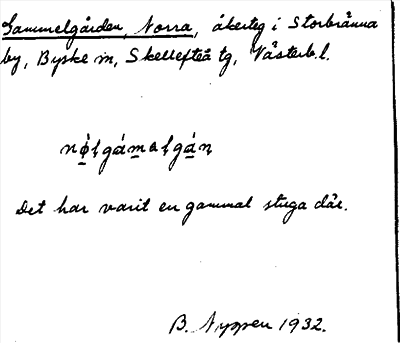 Gammelgården, Norra, åkerteg i Storbränna
by, Byske sn, Skellefteå tg, Västerb.l.
Det har varit en gammal stuga där.
B. Nyppen 1932.